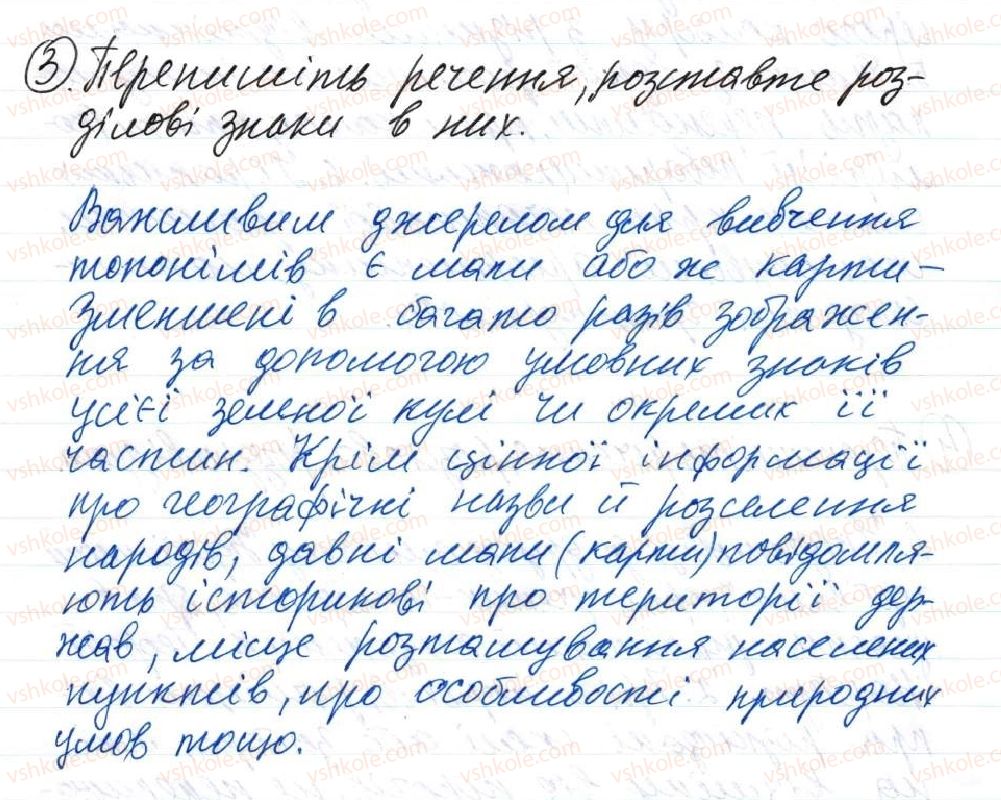 3. Перепишіть речення, розставте роз-
ділові знаки в них.
Важливим джерелом для вивчення
топонімів є мапи або ж карти –
Зменшені в багато разів зображен-
ня за допомогою умовних знаків
усієї земної кулі чи окремих її
частин. Крім цінної інформації
про географічні назви й розселення
народів, давні мапи (карти) повідомля-
ють історикові про території дер-
жав, місце розташування населених
пунктів, про особливості природних
умов тощо.